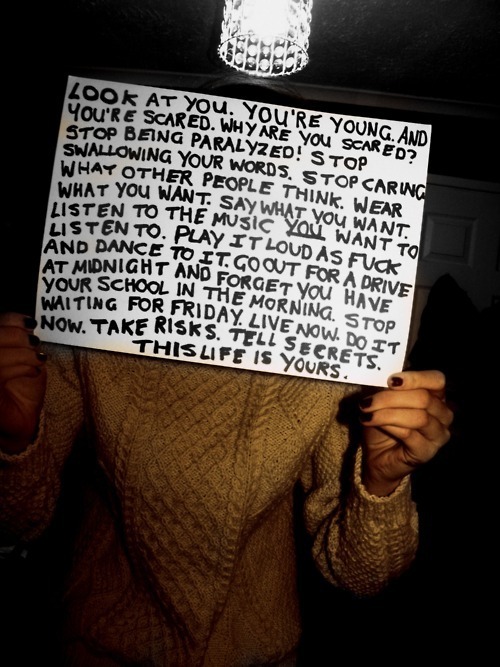 LOOK AT YOU. YOU'RE YOUNG. AND
YOU'RE SCARED. WHY ARE YOU SCARED?
STOP BEING PARALYZED! STOP
SWALLOWING YOUR WORDS. STOP CARING
WHAT OTHER PEOPLE THINK. WEAR
WHAT YOU WANT. SAY WHAT YOU WANT.
LISTEN TO THE MUSIC YOU WANT TO
LISTEN TO. PLAY IT LOUD AS FUCK
AND DANCE TO IT. GO OUT FOR A DRIVE
AT MIDNIGHT AND FORGET YOU HAVE
YOUR SCHOOL IN THE MORNING. STOP
WAITING FOR FRIDAY. LIVE NOW. DO IT
NOW. TAKE RISKS. TELL SECRETS.
THIS LIFE IS YOURS.